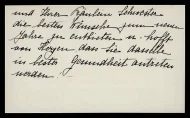 und Ihrer Fräulein Schwester
die besten Wünsche zum neuen
Jahre zu entbieten u. hoffe
von Herzen dass sie dasselbe
in bester Gesundheit antreten
werden